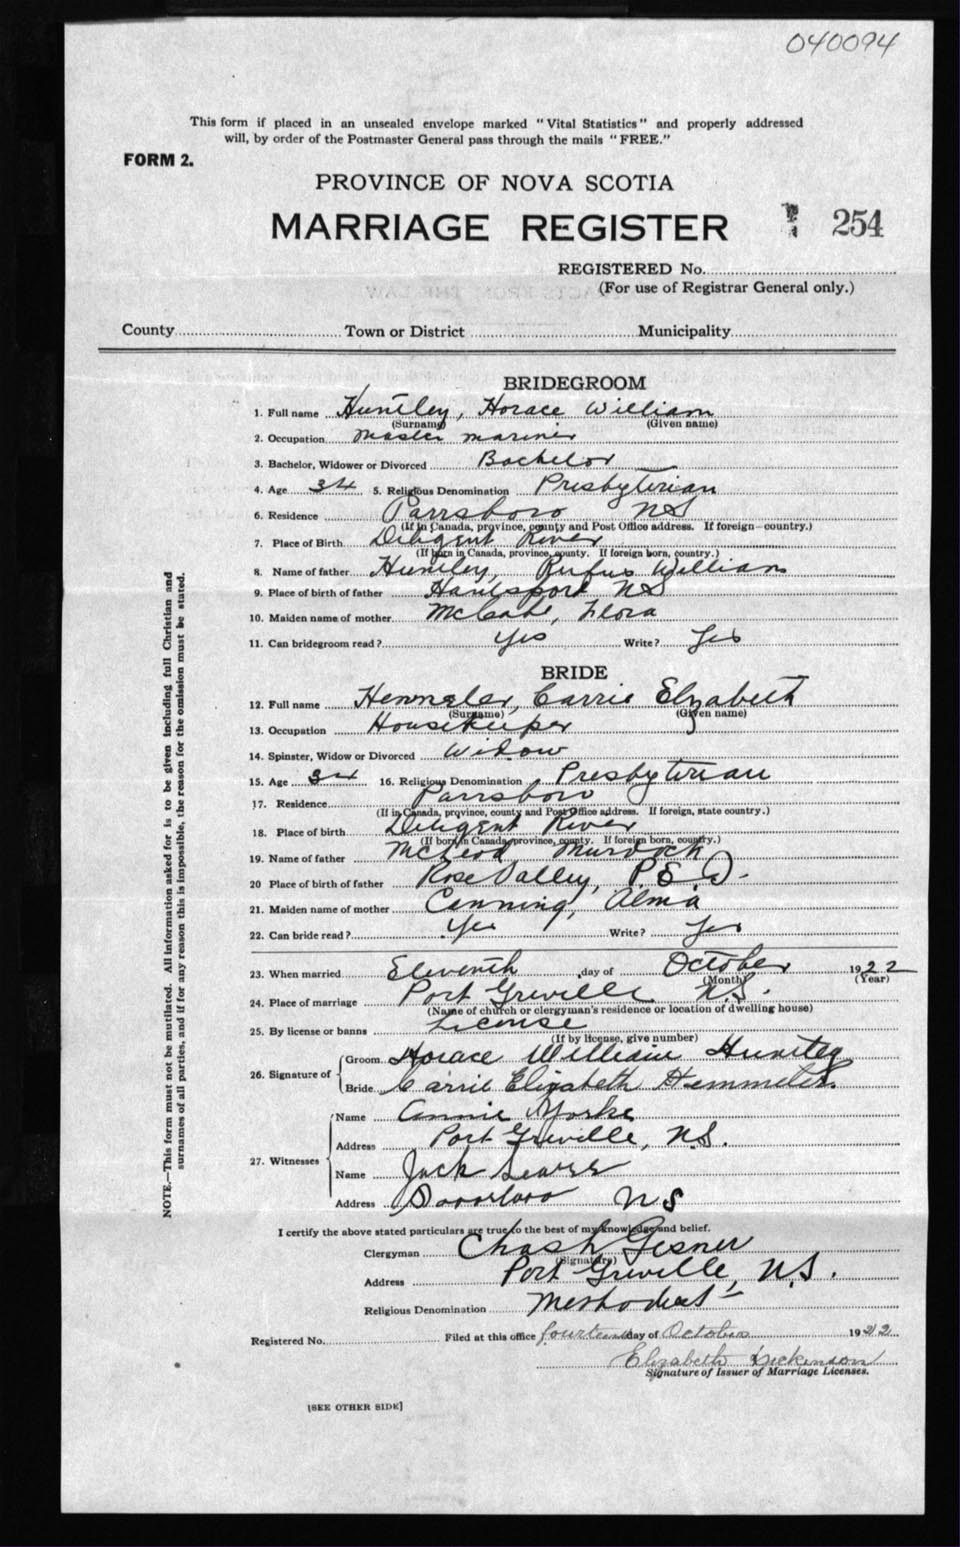 040094
This form if placed in an unsealed envelope marked "Vital Statistics" and properly addressed
will, by order of the Postmaster General pass through the mails "FREE."
FORM 2.
PROVINCE OF NOVA SCOTIA
MARRIAGE REGISTER 254
REGISTERED No.
(For use of Registrar General only.)
County Town or District Municipality
BRIDEGROOM
1. Full name Huntley, Horace William
(Surname) (Given name)
2. Occupation Master mariner
3. Bachelor, Widower or Divorced Bachelor
4. Age 34 5. Religious Denomination Presbyterian
6. Residence Parrsboro NS
(If in Canada, province, county and Post Office address. If foreign country.)
7. Place of Birth Diligent River
(If born in Canada, province, county. If foreign born, country.)
8. Name of father Huntley, Rufus William
9. Place of birth of father Hantsport NS
10. Maiden name of mother McCabe, Flora
11. Can bridegroom read? Yes Write? Yes
BRIDE
12. Full name Carrie Elizabeth
(Surname) (Given name)
13. Occupation Housekeeper
14. Spinster, Widow or Divorced Widow
15. Age 34 16. Religious Denomination Presbyterian
17. Residence Parrsboro
(If in Canada, province, county and Post Office address. If foreign, state country.)
18. Place of birth Diligent River
(If born in Canada, province, county. If foreign born, country.)
19. Name of father McLeod Murdock
20 Place of birth of father Rose Valley, P.E.I.
21. Maiden name of mother Canning, Alma
22. Can bride read? Yes Write? Yes
23. When married Eleventh day of October 1922
(Month) (Year)
24. Place of marriage Port Greville N.S.
(Name of church or clergyman's residence or location of dwelling house)
25. By license or banns License
(If by license, give number)
26. Signature of Groom Horace William Huntley
Bride Carrie Elizabeth
27. Witnesses Name Annie Yorke
Address Port Greville, N.S.
Name Jack
Address NS
I certify the above stated particulars are true to the best of my knowledge and belief.
Clergyman Chas H Gesner
(Signature)
Address Port Greville, N.S.
Religious Denomination Methodist
Registered No. Filed at this office fourteenth day of October 1922
Elizabeth Dickinson
Signature of Issuer of Marriage Licenses.
[SEE OTHER SIDE]
NOTE.—This form must not be mutilated. All information asked for is to be given including full Christian and
surnames of all parties, and if for any reason this is impossible, the reason for the omission must be stated.